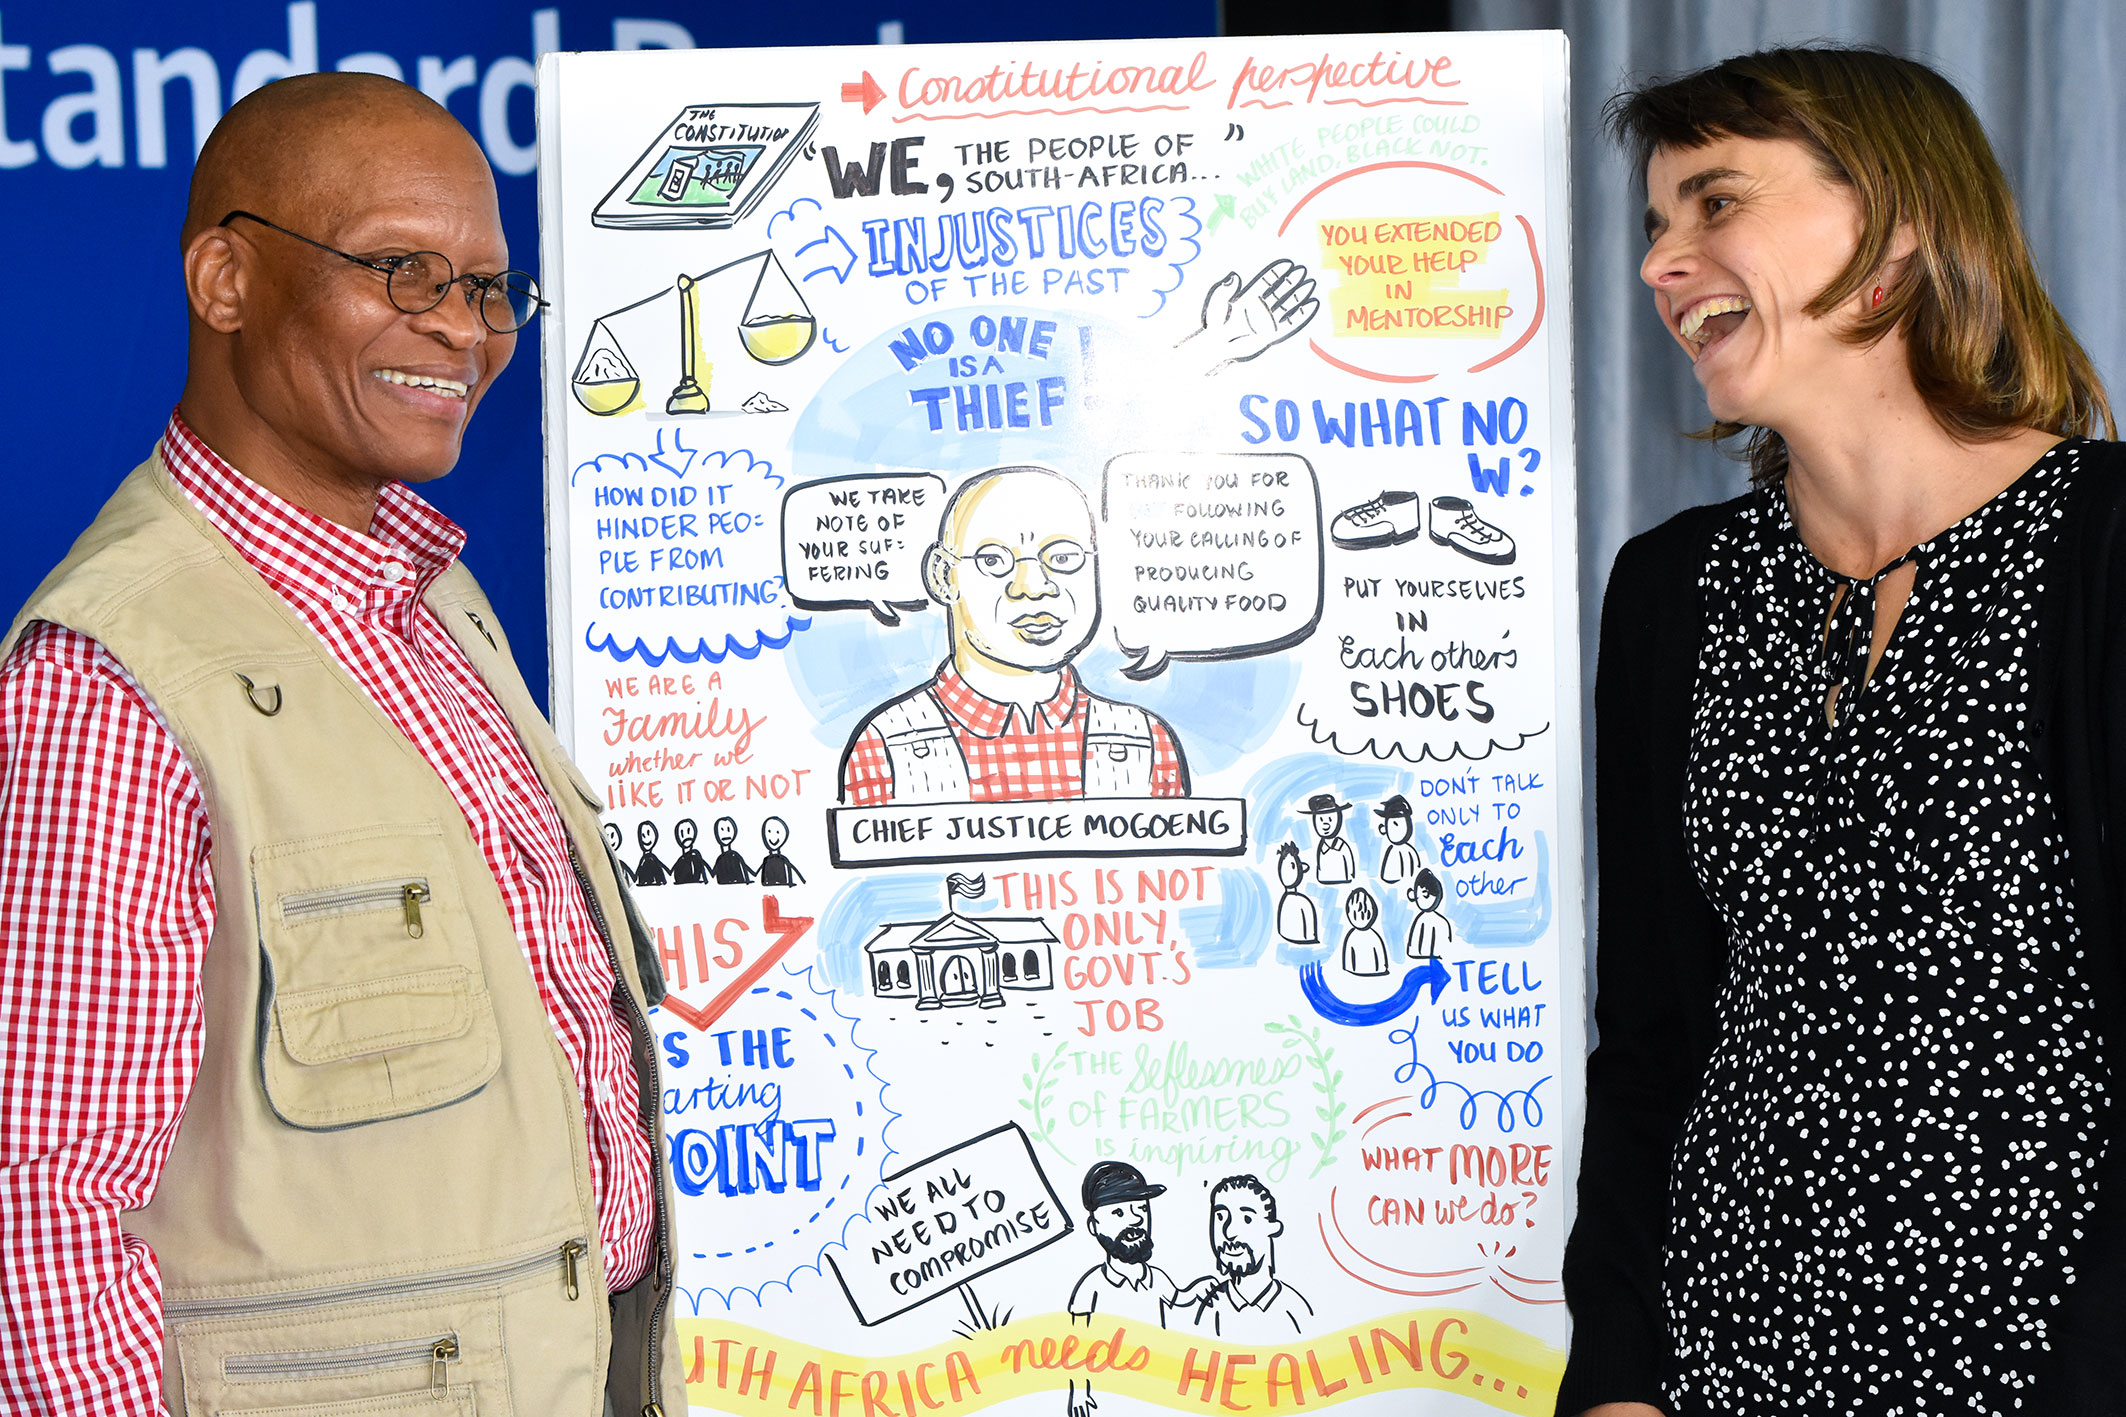 tandard
Constitutional perspective
THE
CONSTITUTION
"WE, THE PEOPLE OF
SOUTH-AFRICA..."
WHITE PEOPLE COULD
BUY LAND, BLACK NOT.
INJUSTICES
OF THE PAST
YOU EXTENDED
YOUR HELP
IN
MENTORSHIP
NO ONE
IS A
THIEF
SO WHAT NO
W?
HOW DID IT
HINDER PEO=
PLE FROM
CONTRIBUTING?
WE TAKE
NOTE OF
YOUR SUF=
FERING
THANK YOU FOR
FOLLOWING
YOUR CALLING OF
PRODUCING
QUALITY FOOD
PUT YOURSELVES
IN
Each other's
SHOES
WE ARE A
Family
whether we
LIKE IT OR NOT
CHIEF JUSTICE MOGOENG
DON'T TALK
ONLY TO
Each
other
THIS IS NOT
ONLY,
GOVT.S
JOB
HIS
S THE
arting
POINT
TELL
US WHAT
YOU DO
THE Seflessness
OF FARMERS
is inspiring
WHAT MORE
CAN we do?
WE ALL
NEED TO
COMPROMISE
UTH AFRICA needs HEALING...